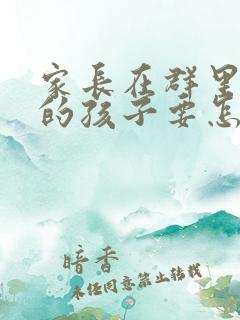 家长在群里
的孩子要怎
暗香
未经同意禁止转载